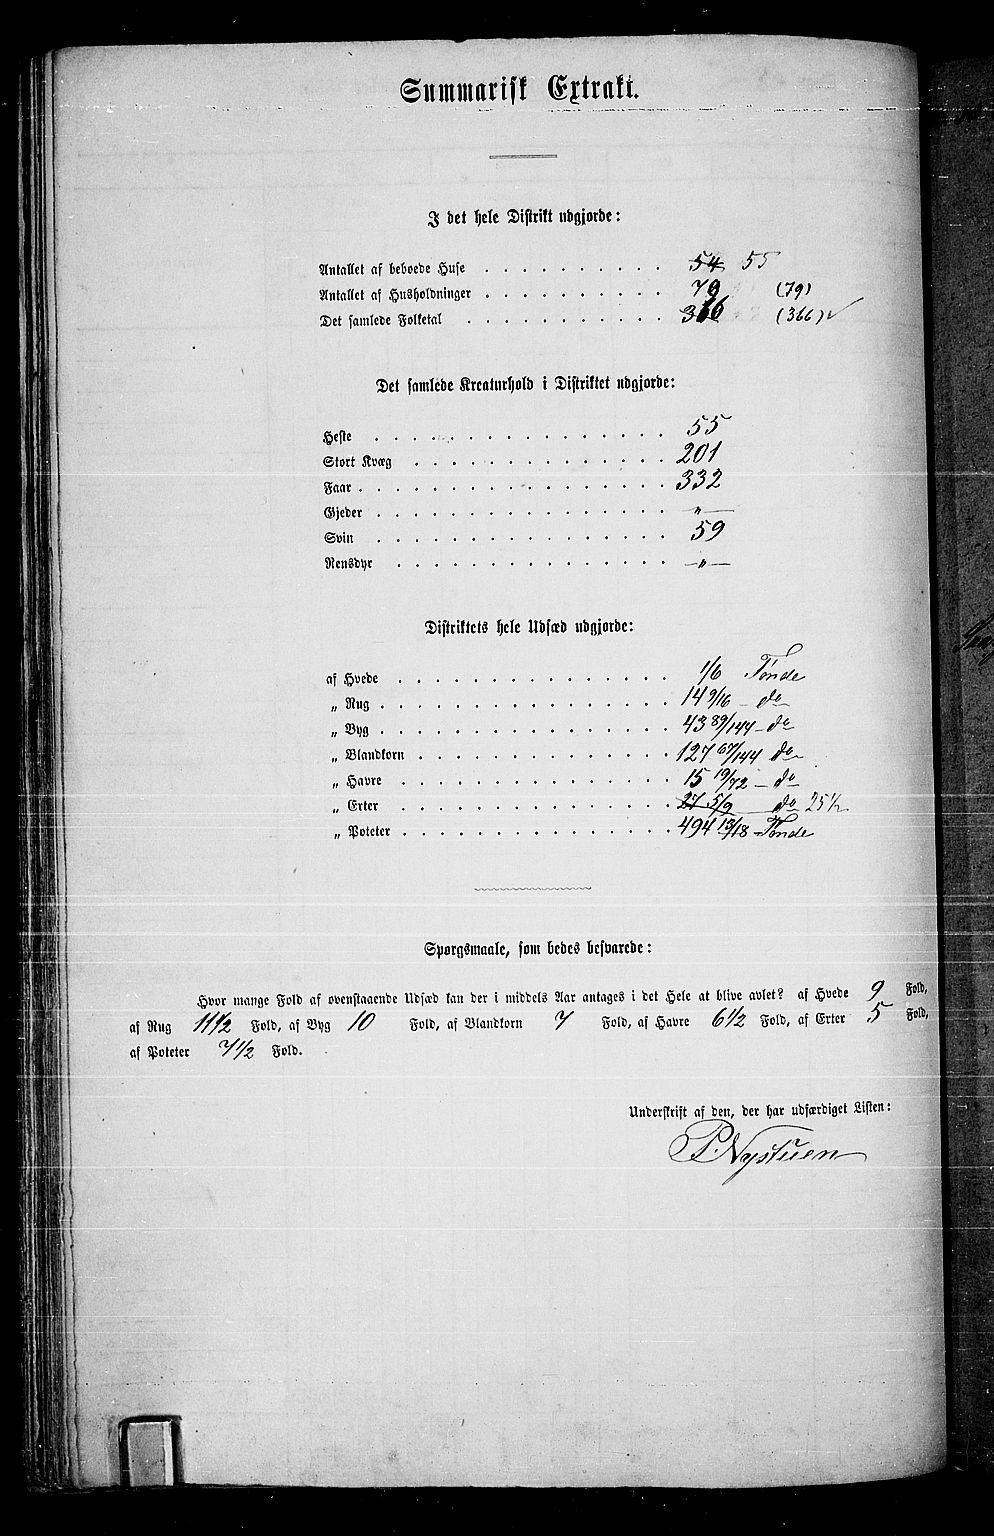 Summarisk Extrakt.
I det hele Distrikt udgjorde:
Antallet af beboede Huse . . . . . . . . . . 54 55
Antallet af Husholdninger . . . . . . . . . . 79 (79)
Det samlede Folketal . . . . . . . . . . . 366 (366) ✓
Det samlede Kreaturhold i Distriktet udgjorde:
Heste . . . . . . . . . . . . . . . . 55
Stort Kvæg . . . . . . . . . . . . . . 201
Faar . . . . . . . . . . . . . . . . . 332
Gjeder . . . . . . . . . . . . . . . . „ —
Svin . . . . . . . . . . . . . . . . 59
Rensdyr . . . . . . . . . . . . . . . — „ —
Distriktets hele Udsæd udgjorde:
af Hvede . . . . . . . . . . . . . . . 1/6 Tønde
„ Rug . . . . . . . . . . . . . . . . 14 9/16 — do
„ Byg . . . . . . . . . . . . . . . . 43 89/144 — do
„ Blandkorn . . . . . . . . . . . . . . 127 67/144 do
„ Havre . . . . . . . . . . . . . . . 15 19/72 — do
„ Erter . . . . . . . . . . . . . . . 27 5/9 do 25 1/2
„ Poteter . . . . . . . . . . . . . . . 494 13/18 Tønde
Spørgsmaale, som bedes besvarede:
Hvor mange Fold af ovenstaaende Udsæd kan der i middels Aar antages i det Hele at blive avlet? af Hvede 9 Fold,
af Rug 11 1/2 Fold, af Byg 10 Fold, af Blandkorn 7 Fold, af Havre 6 1/2 Fold, af Erter 5 Fold,
af Poteter 7 1/2 Fold.
Underskrift af den, der har udfærdiget Listen:
P. Nystuen